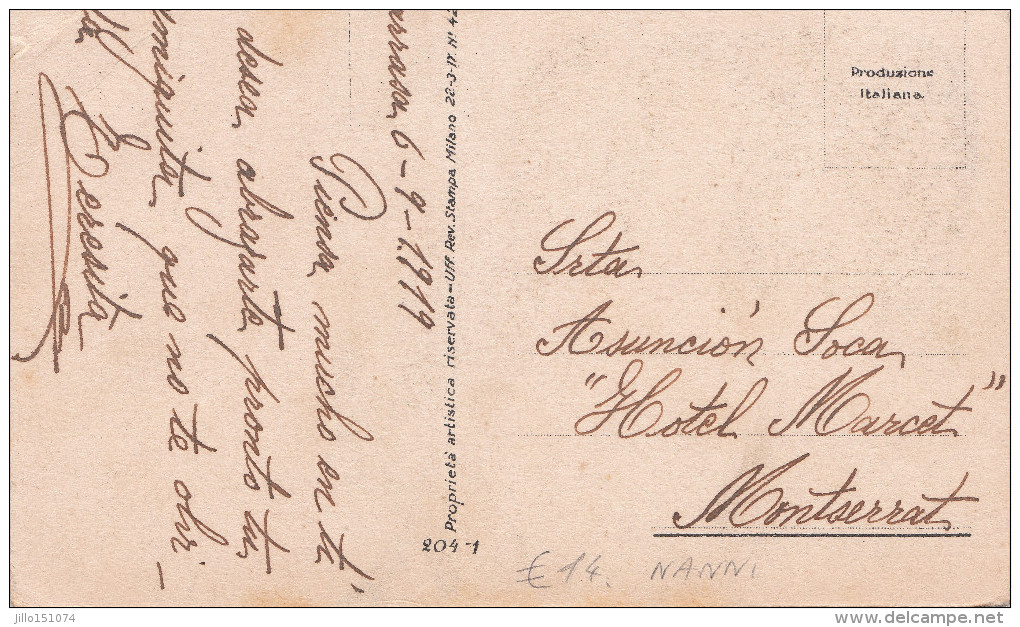 Produzione
Italiana.
Srta
Asunción Soca
"Hotel Marcet"
Montserrat
rrasa 6-9-1919
Piensa mucho en ti
desea abrazarte pronto tu
amiguita que no te olvi-
da
Teresita
Proprietà artistica riservata - Uff. Rev. Stampa Milano 22-3-17. N° 42
204-1
€ 14. NANNI
jillo151074
www.delcampe.net